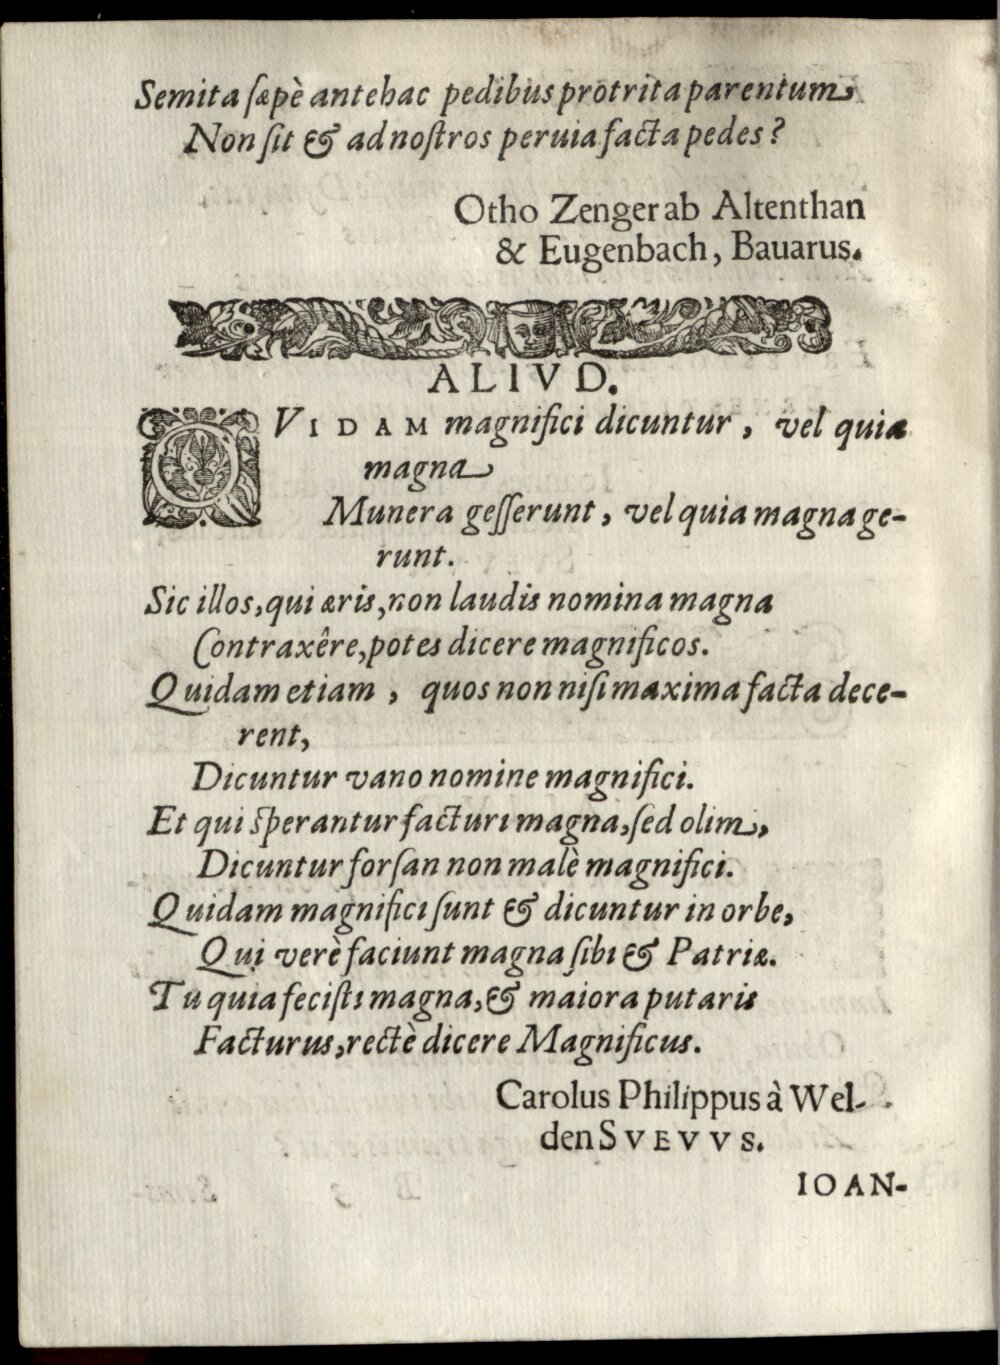 Semita sæpè antehac pedibus protrita parentum
Non sit & ad nostros peruia facta pedes?
Otho Zenger ab Altenthan
& Eugenbach, Bauarus.
ALIVD.
QVIDAM magnifici dicuntur, vel quia
magna
Munera gesserunt, vel quia magna ge-
runt.
Sic illos, qui æris, non laudis nomina magna
Contraxêre, potes dicere magnificos.
Quidam etiam, quos non nisi maxima facta dece-
rent,
Dicuntur vano nomine magnifici.
Et qui sperantur facturi magna, sed olim,
Dicuntur forsan non malè magnifici.
Quidam magnifici sunt & dicuntur in orbe,
Qui verè faciunt magna sibi & Patriæ.
Tu quia fecisti magna, & maiora putaris
Facturus, rectè dicere Magnificus.
Carolus Philippus à Wel-
den SVEVVS.
IOAN-